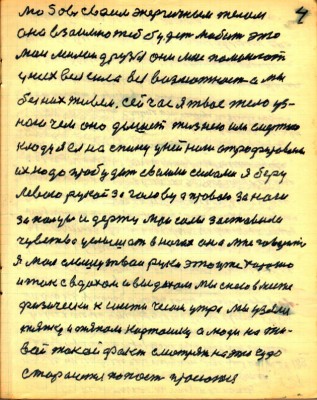 4
любовь своим энергичным телом
она взаимно тебе будет любить это
мои милые друзья они мне помогают
у них вся сила вся возможность а мы
без них живем. сейчас я твое тело уз-
наю чем оно дышет жизнею или смертью
кладу я её на спину у ней ноги атрофированы
их надо пробудить своими силами я беру
левою рукой за голову а правою за ноги
за пальцы и держу мои силы заставили
чувство услышать в ногах она мне говорит
я слышу твои руки это уже хорошо
и так с вдохом и выдохом мы с нею вместе
физически к шести часам утра мы узяли
а люди на жи-
вой такой факт смотрят на это чудо
стараются попасть просются